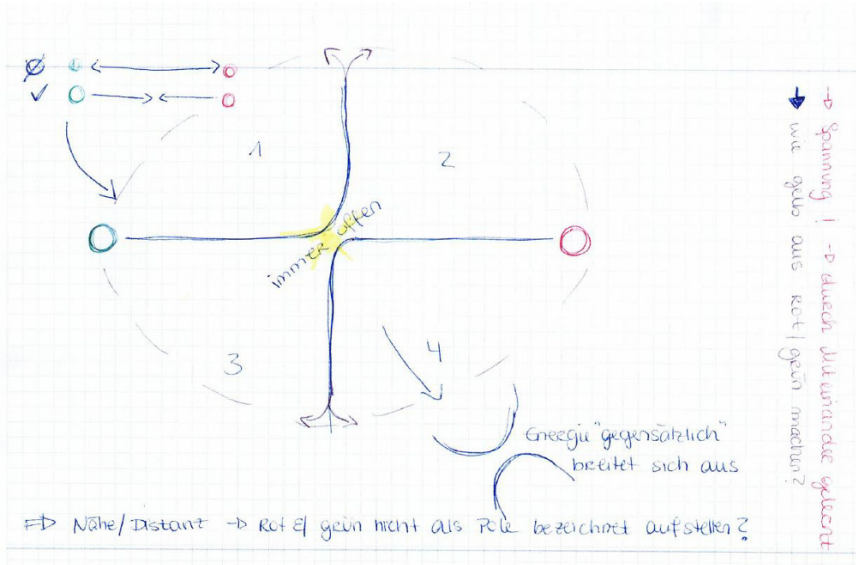 1
2
immer offen
3
4
Energie "gegensätzlich"
breitet sich aus
=> Nähe/Distanz -> Rot &/ grün nicht als Pole bezeichnet aufstellen?
-> Spannung! -> durch Miteinander gelernt
wie gelb aus Rot/grün machen?